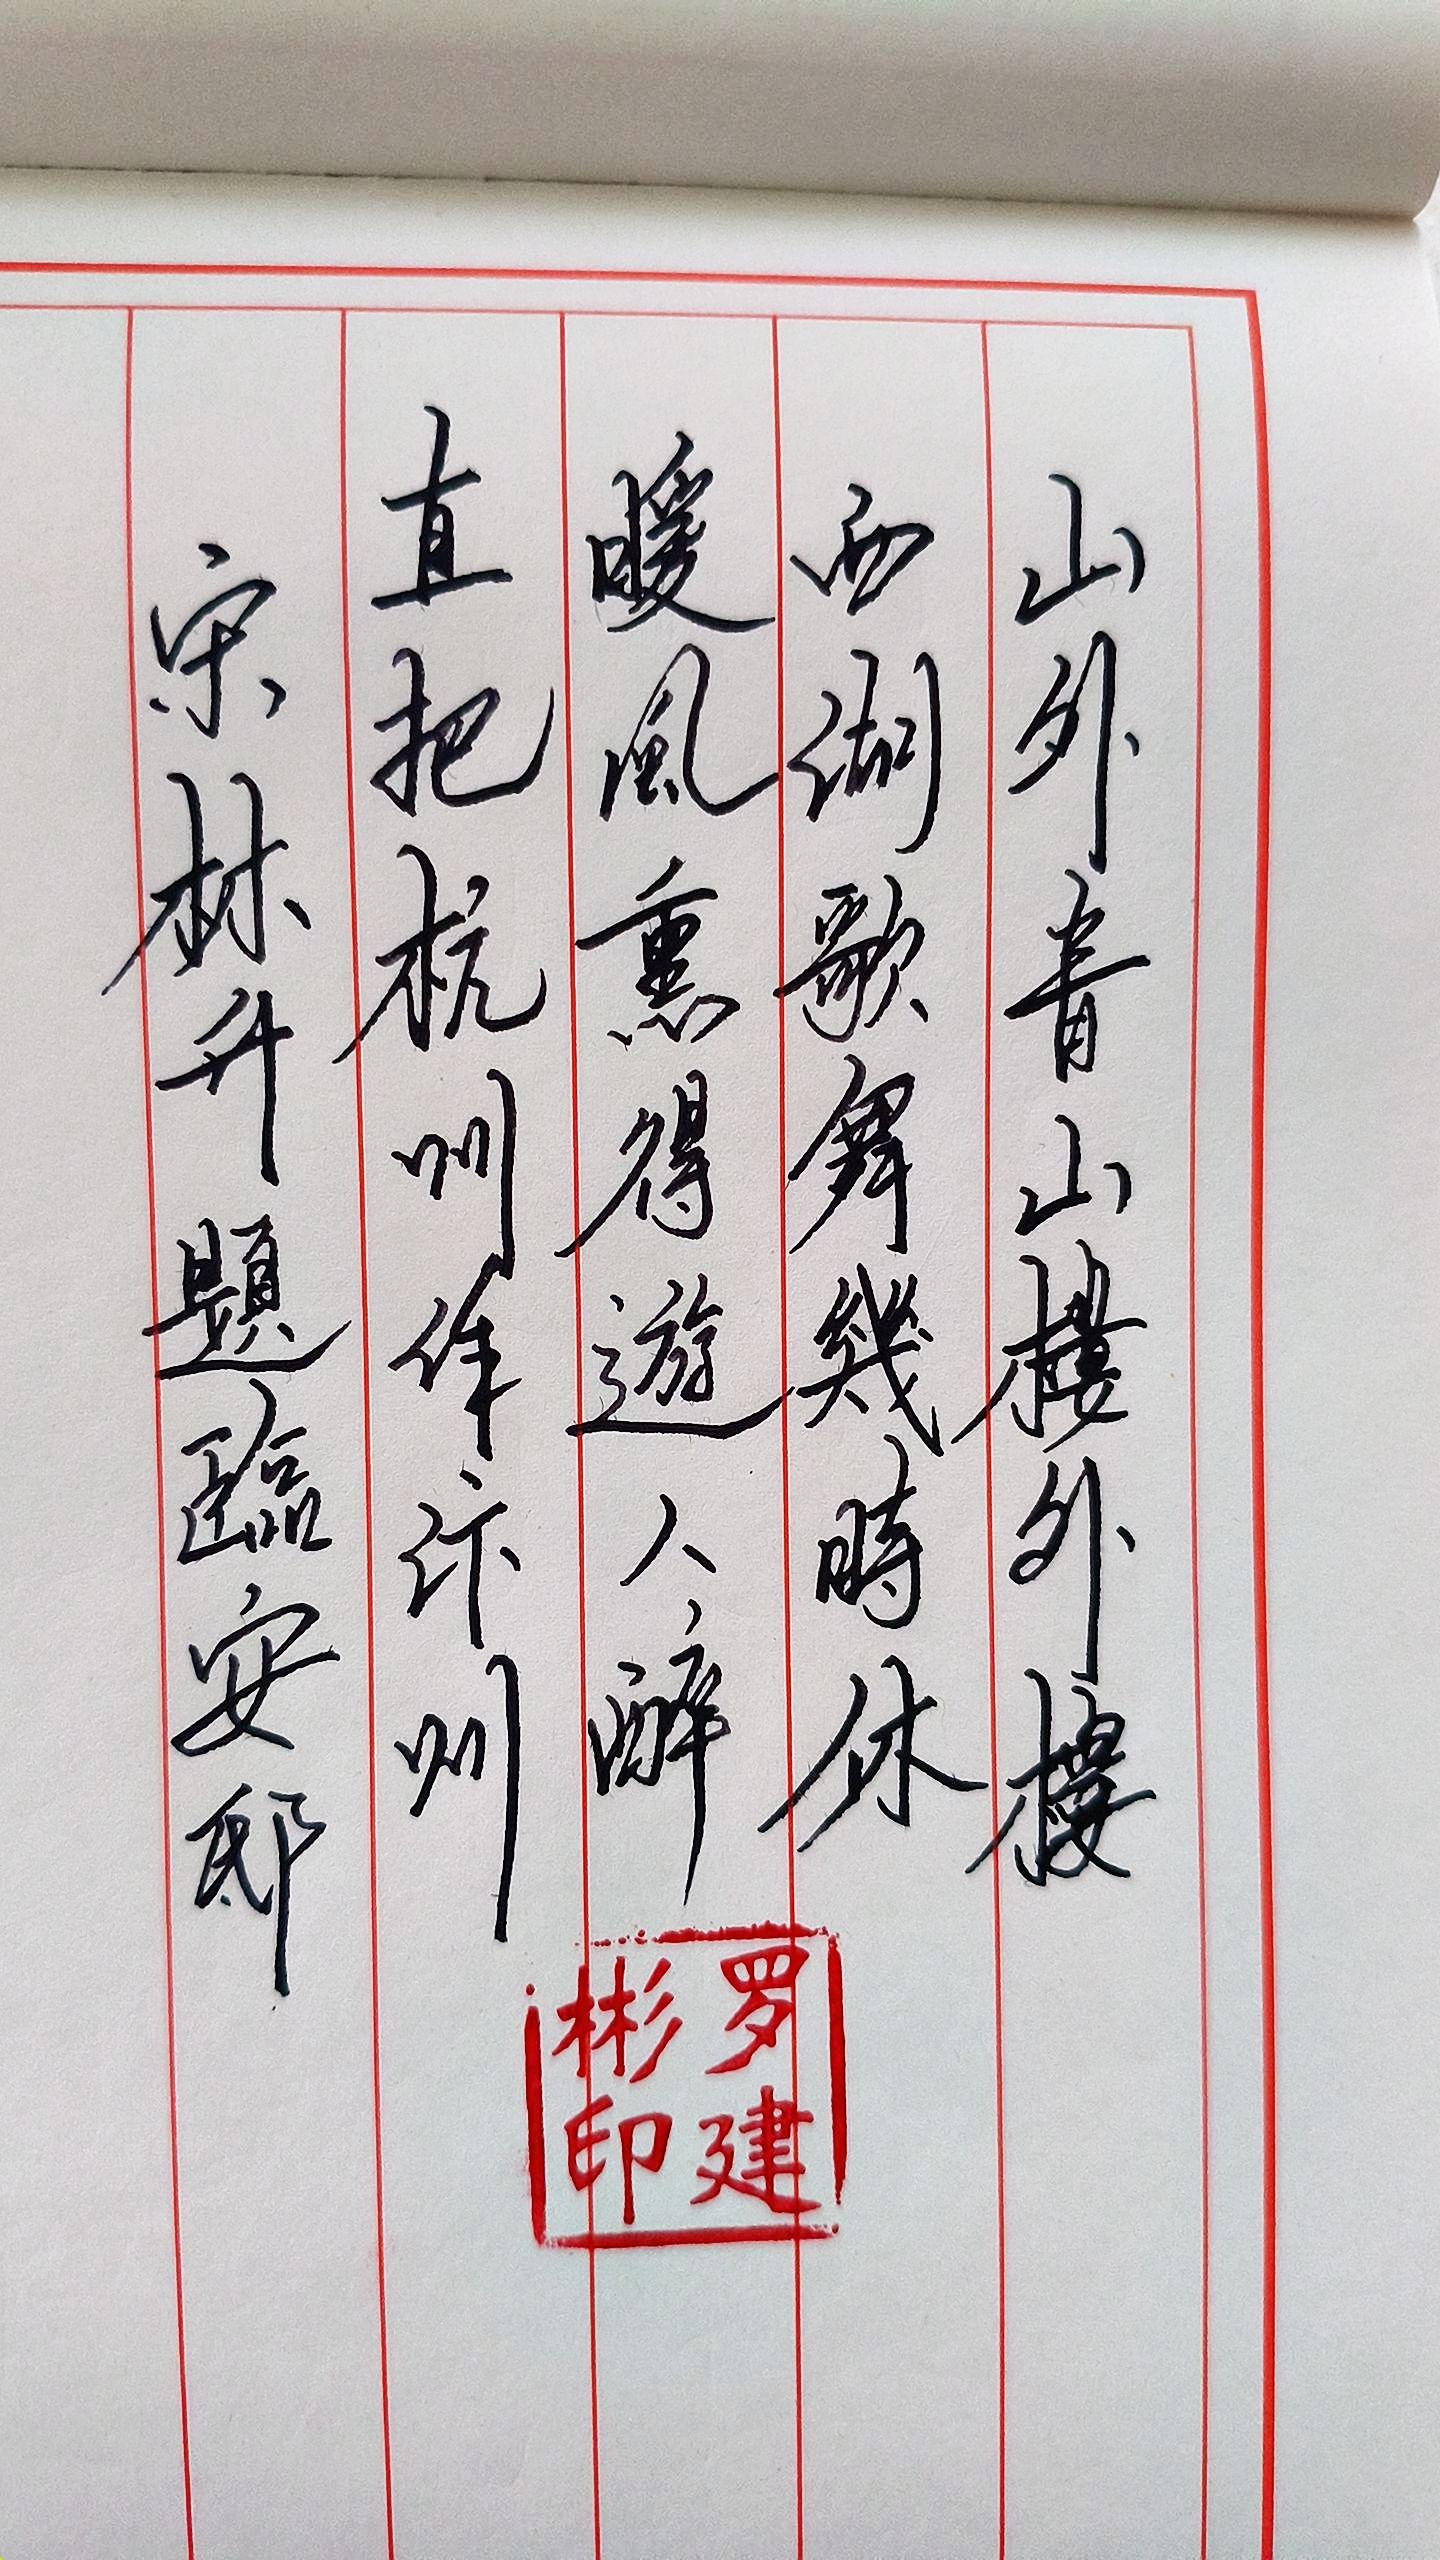 山外青山樓外樓
西湖歌舞幾時休
暖風熏得遊人醉
直把杭州作汴州
宋林升題臨安邸
罗建
彬印